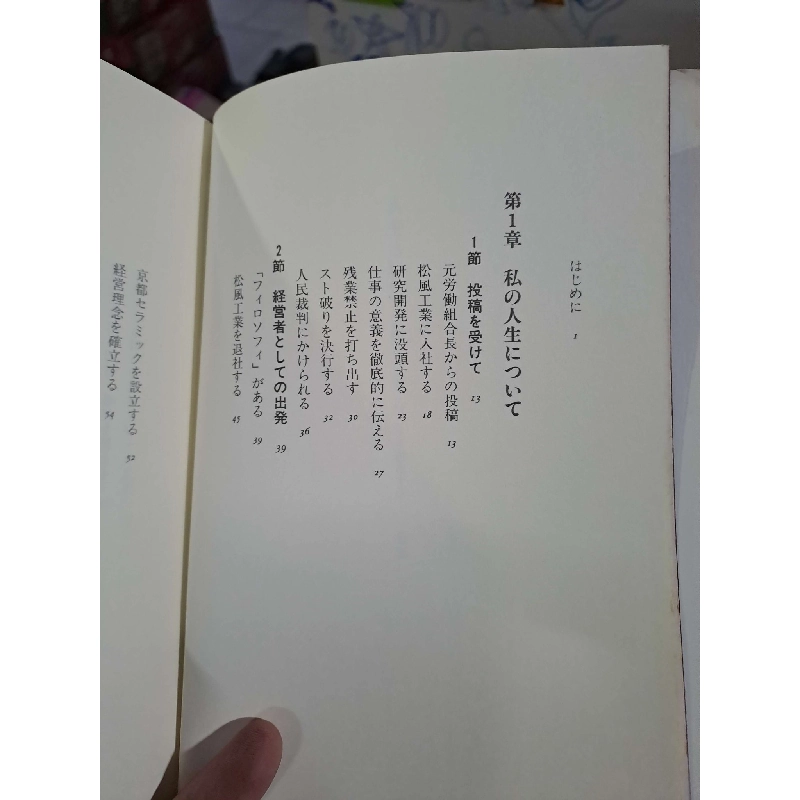 はじめに 1
第1章 私の人生について
1節 投稿を受けて 13
元労働組合長からの投稿 13
松風工業に入社する 18
研究開発に没頭する 23
仕事の意義を徹底的に伝える 27
残業禁止を打ち出す 30
スト破りを決行する 32
人民裁判にかけられる 36
2節 経営者としての出発 39
「フィロソフィ」がある 39
松風工業を退社する 45
京都セラミックを設立する 52
経営理念を確立する 54